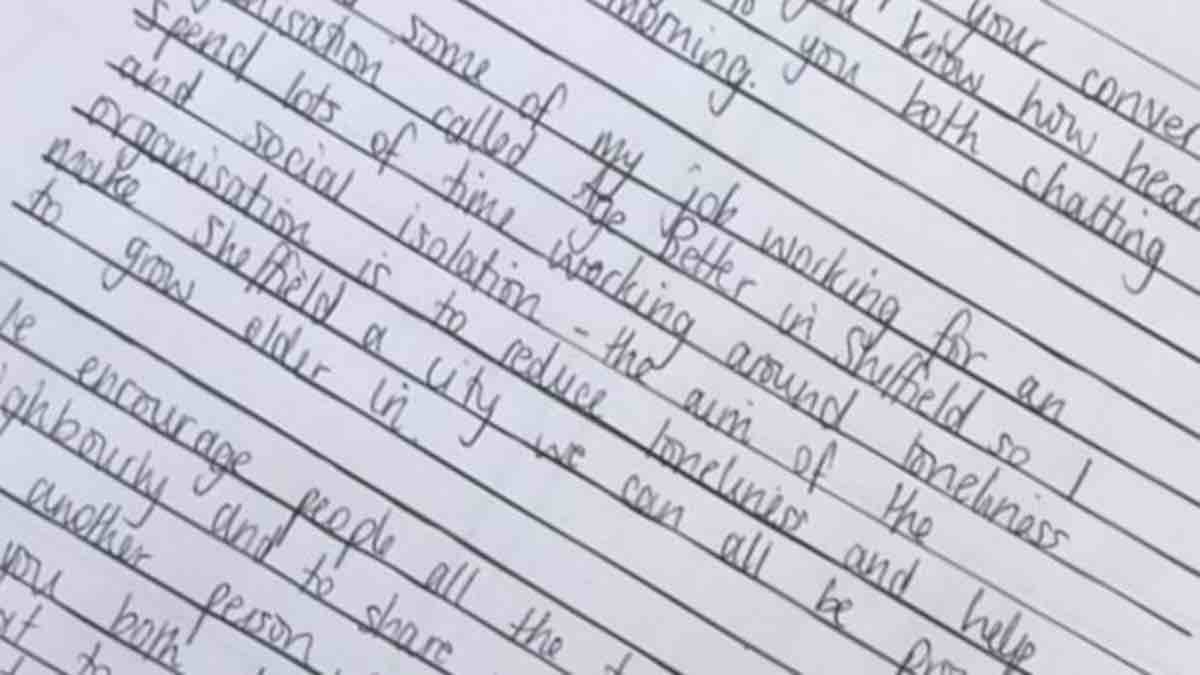 your conver
know how hear
you both chatting
morning.
some of my job working for an
isation called Age Better in Sheffield so I
spend lots of time working around loneliness
and social isolation - the aim of the
organisation is to reduce loneliness and help
make Sheffield a city we can all be pro
to grow older in.
encourage people all the t
ghbourly and to share
another person
you both